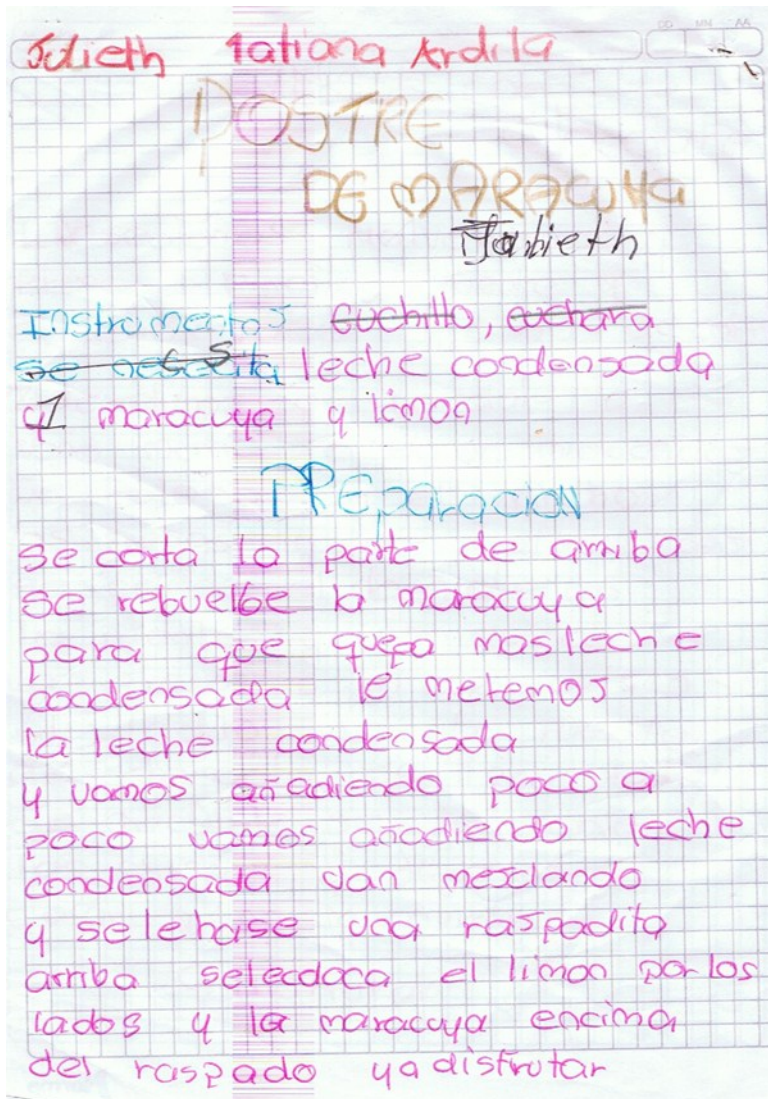 DD MM AA
Julieth Tatiana Ardila
POSTRE
DE MARACUYA
Instrumentos cuchillo, cuchara
se nesesita leche condensada
y 1 maracuya y limon
PREparacion
se corta la parte de arriba
se rebuelbe la maracuya
para que quepa mas leche
condensada le metemos
la leche condensada
y vamos añadiendo poco a
poco vamos añadiendo leche
condensada van mesclando
y se le hase una raspadita
arriba selecdoca el limon por los
lados y la maracuya encima
del raspado y a disfrutar